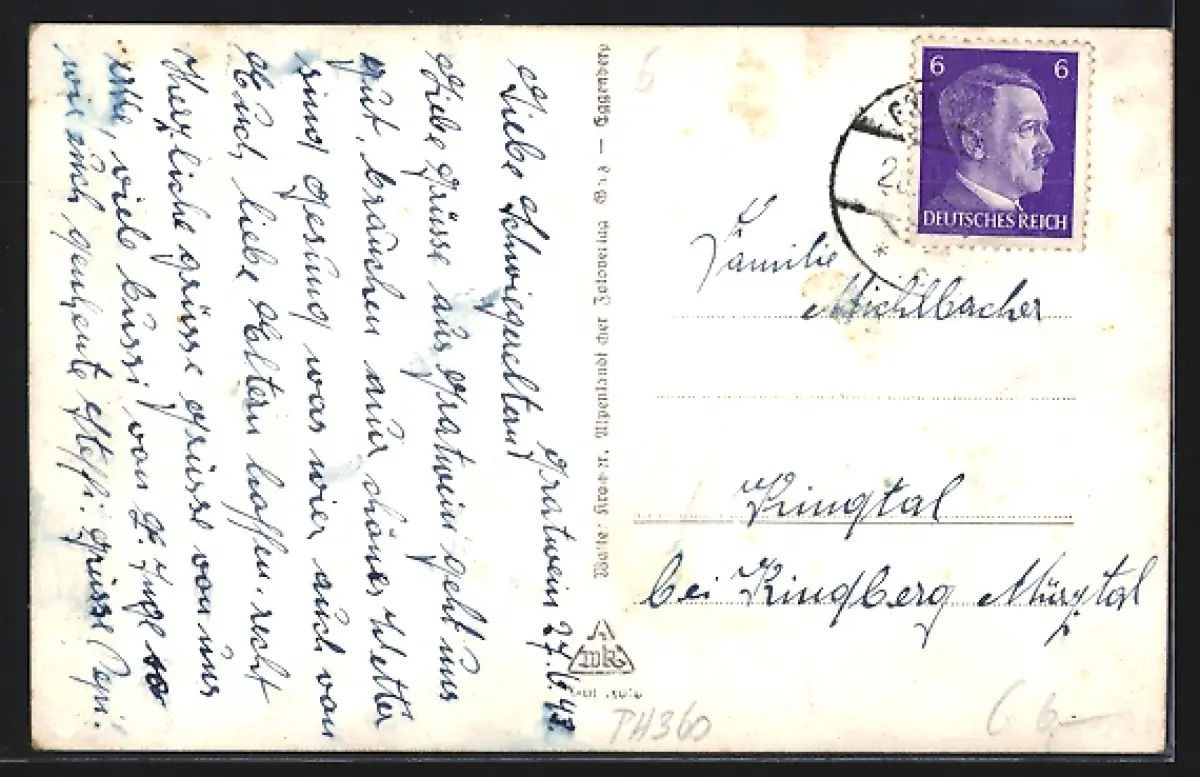 Gratwein 27.6.43.
Liebe Schwiegereltern!
Liebe Grüsse aus Gratwein geht uns
gut, brauchen nur schönes Wetter
sind gesund was wier auch von
Euch, liebe Eltern hoffen. recht
Herzliche grüsse grüsse von uns
alle, viele bussi von
wie auch Steffi. grüsse Pepi!
Alpenlandbücher Fotoverlag Graz – Eggenberg
WK
6 6
DEUTSCHES REICH
Familie
Michlbacher
Kingtal
bei Kingberg Mürztal
PH360
6